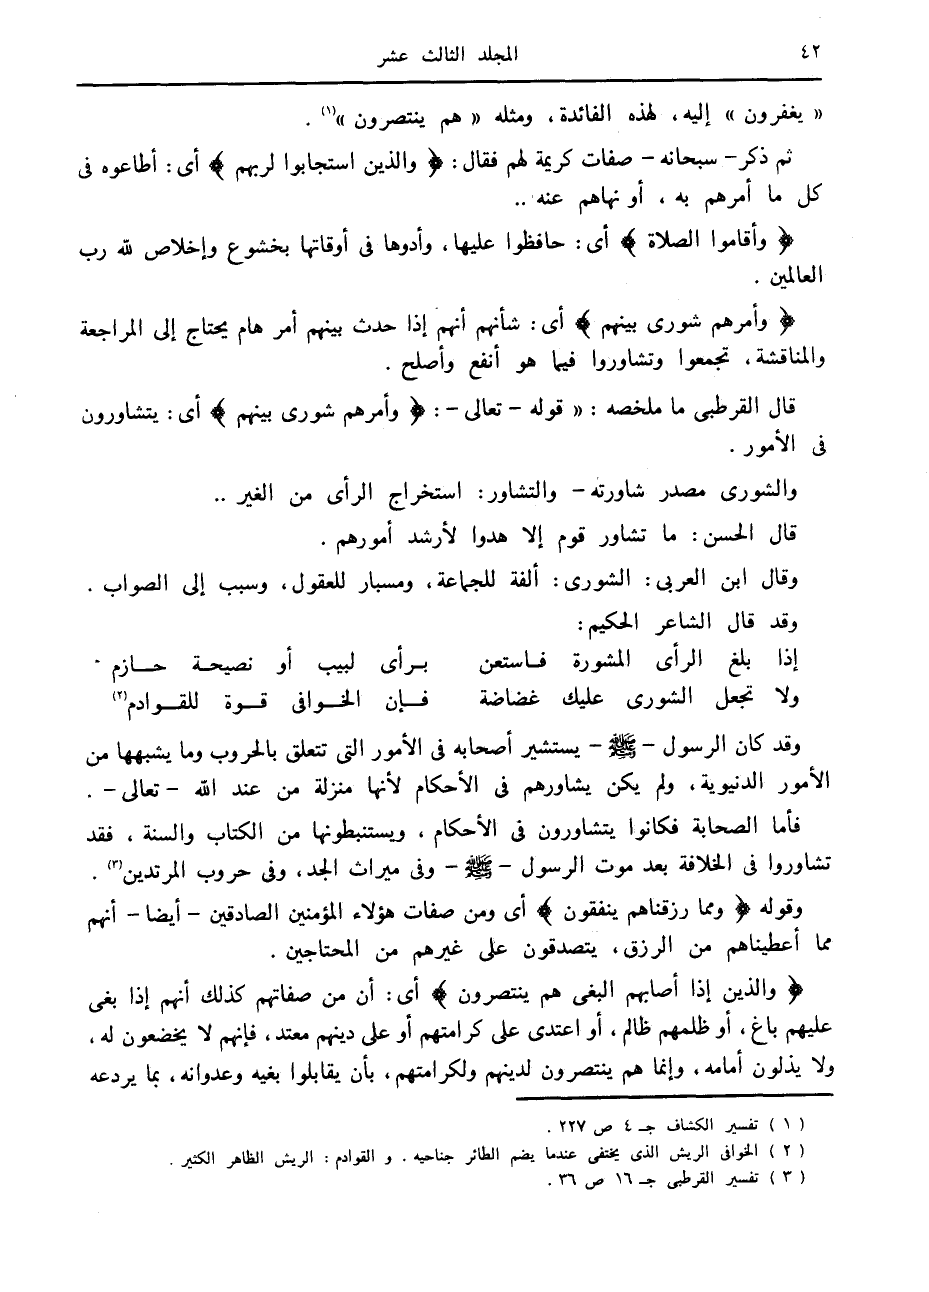 ٤٢
المجلد الثالث عشر
« يغفرون » إليه، لهذه الفائدة، ومثله « هم ينتصرون »(١) .
ثم ذكر - سبحانه - صفات كريمة لهم فقال: ﴿ والذين استجابوا لربهم ﴾ أى: أطاعوه فى
كل ما أمرهم به ، أو نهاهم عنه ..
﴿ وأقاموا الصلاة ﴾ أى: حافظوا عليها، وأدوها فى أوقاتها بخشوع وإخلاص لله رب
العالمين .
﴿ وأمرهم شورى بينهم ﴾ أى: شأنهم أنهم إذا حدث بينهم أمر هام يحتاج إلى المراجعة
والمناقشة، تجمعوا وتشاوروا فيما هو أنفع وأصلح .
قال القرطبى ما ملخصه : « قوله - تعالى -: ﴿ وأمرهم شورى بينهم ﴾ أى: يتشاورون
فى الأمور .
والشورى مصدر شاورته - والتشاور: استخراج الرأى من الغير ..
قال الحسن: ما تشاور قوم إلا هدوا لأرشد أمورهم .
وقال ابن العربى: الشورى: ألفة للجماعة، ومسبار للعقول، وسبب إلى الصواب .
وقد قال الشاعر الحكيم:
إذا بلغ الرأى المشورة فـاستعن بـرأى لبيب أو نصيحة حـازم
ولا تجعل الشورى عليك غضاضة فـإن الخـوافى قـوة للقـوادم(٢)
وقد كان الرسول - ﷺ - يستشير أصحابه فى الأمور التى تتعلق بالحروب وما يشبهها من
الأمور الدنيوية، ولم يكن يشاورهم فى الأحكام لأنها منزلة من عند الله - تعالى - .
فأما الصحابة فكانوا يتشاورون فى الأحكام ، ويستنبطونها من الكتاب والسنة ، فقد
تشاوروا فى الخلافة بعد موت الرسول - ﷺ - وفى ميراث الجد، وفى حروب المرتدين(٣) .
وقوله ﴿ ومما رزقناهم ينفقون ﴾ أى ومن صفات هؤلاء المؤمنين الصادقين - أيضا - أنهم
مما أعطيناهم من الرزق، يتصدقون على غيرهم من المحتاجين .
﴿ والذين إذا أصابهم البغى هم ينتصرون ﴾ أى: أن من صفاتهم كذلك أنهم إذا بغى
عليهم باغ، أو ظلمهم ظالم، أو اعتدى على كرامتهم أو على دينهم معتد، فإنهم لا يخضعون له،
ولا يذلون أمامه، وإنما هم ينتصرون لدينهم ولكرامتهم، بأن يقابلوا بغيه وعدوانه، بما يردعه
( ١ ) تفسير الكشاف جـ ٤ ص ٢٢٧ .
( ٢ ) الخوافى الريش الذى يختفى عندما يضم الطائر جناحيه . و القوادم : الريش الظاهر الكثير .
( ٣ ) تفسير القرطبى جـ ١٦ ص ٣٦ .